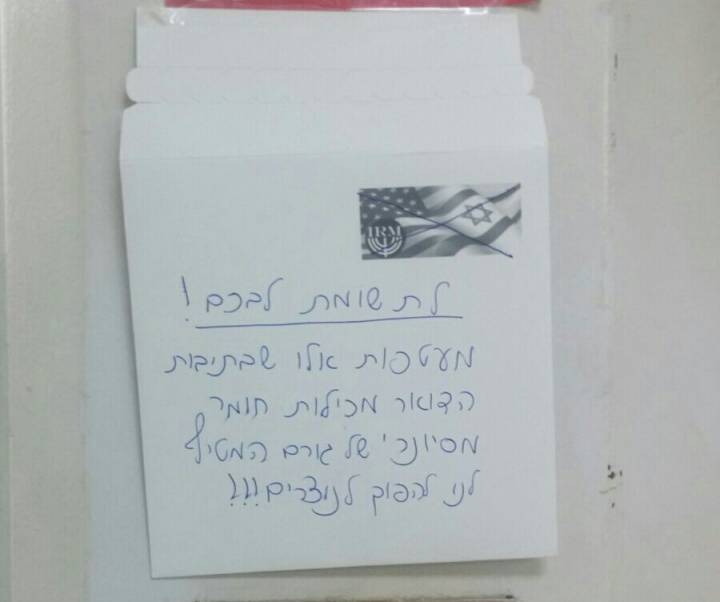 IRM
לתשומת לבכם!
מעטפות אלו שבתיבות
הדואר מכילות חומר
מסיונרי של גורם המטיף
לנו להפוך לנוצרים!!!